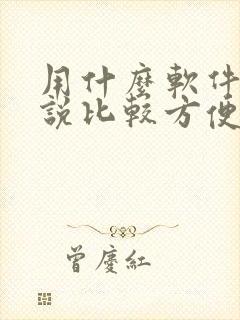 用什麼軟件
說比較方便
曾慶紅